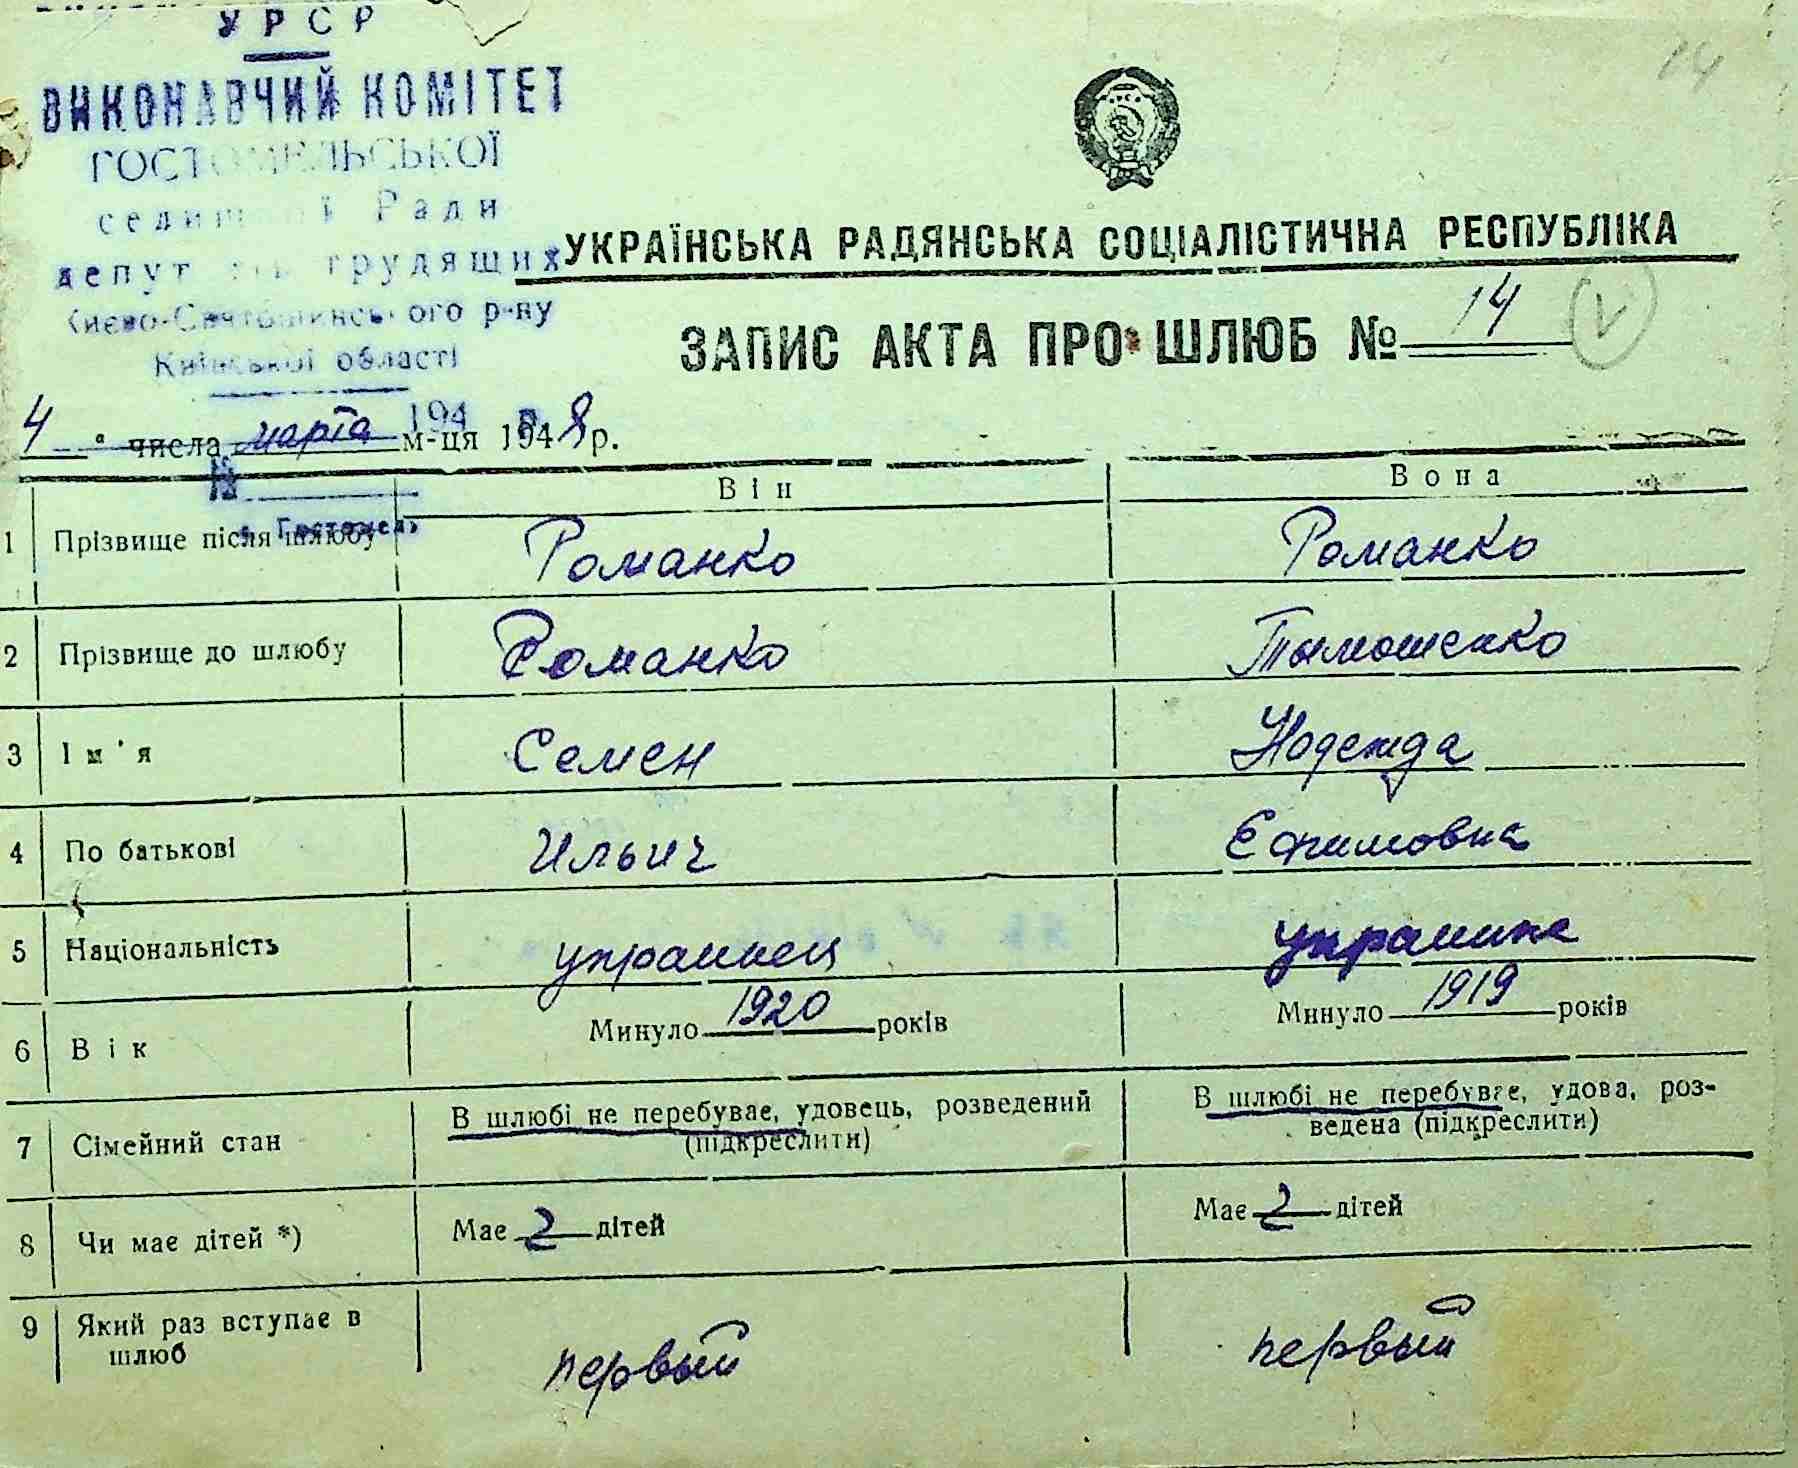 14
УРСР
ВИКОНАВЧИЙ КОМІТЕТ
ГОСТОМЕЛЬСЬКОЇ
селищної Ради
депутатів трудящих
Києво-Святошинського р-ну
Київської області
УКРАЇНСЬКА РАДЯНСЬКА СОЦІАЛІСТИЧНА РЕСПУБЛІКА
ЗАПИС АКТА ПРО ШЛЮБ № 14
194 р
4 " числа марта м-ця 1948 р.
№
Гостомель
Він Вона
1 Прізвище після шлюбу Романко Романко
2 Прізвище до шлюбу Романко Тымошенко
3 Ім'я Семен Надежда
4 По батькові Ильич Ефимовна
5 Національність украинец украинка
6 Вік Минуло 1920 років Минуло 1919 років
7 Сімейний стан В шлюбі не перебуває, удовець, розведений В шлюбі не перебуває, удова, роз-
(підкреслити) ведена (підкреслити)
8 Чи має дітей *) Має 2 дітей Має 2 дітей
9 Який раз вступає в
шлюб первый первый